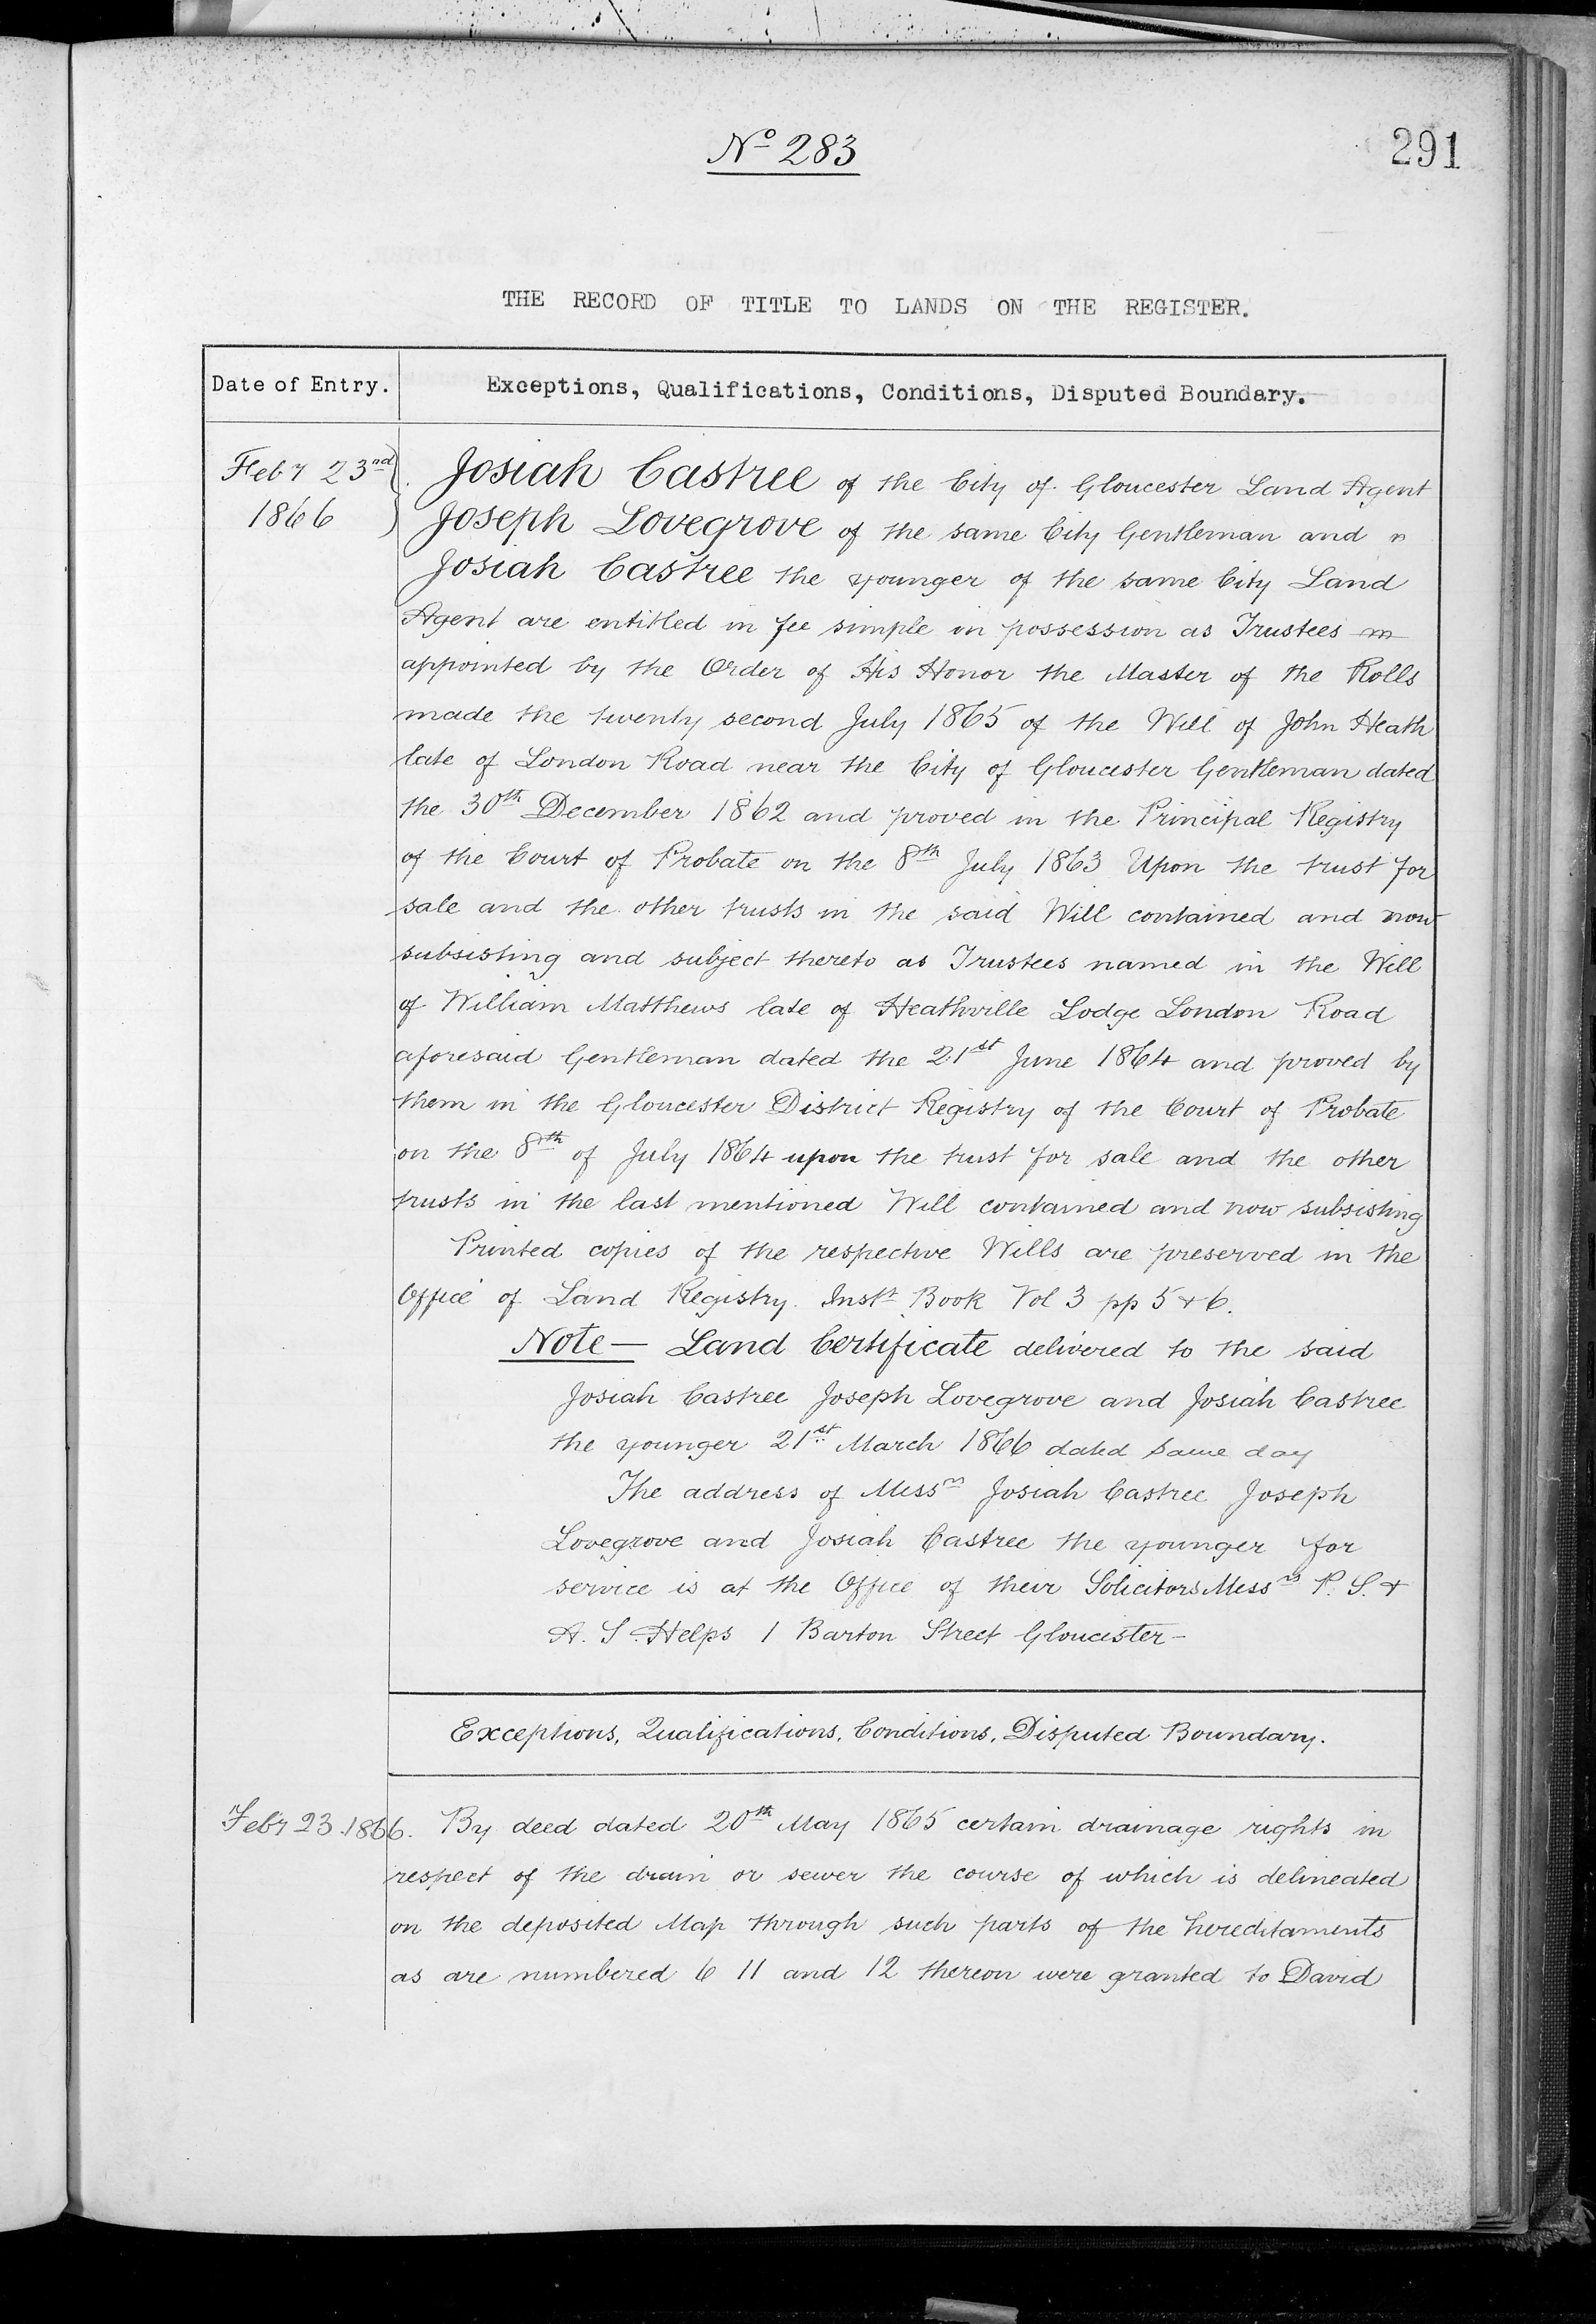 No 283
291
THE RECORD OF TITLE TO LANDS ON THE REGISTER.
Date of Entry.
Exceptions, Qualifications, Conditions, Disputed Boundary.
Feby 23nd
1866
Josiah Castree of the City of Gloucester Land Agent
Joseph Lovegrove of the same City Gentleman and
Josiah Castree the younger of the same City Land
Agent are entitled in fee simple in possession as Trustees
appointed by the Order of His Honor the Master of the Rolls
made the twenty second July 1865 of the Will of John Heath
late of London Road near the City of Gloucester Gentleman dated
the 30th December 1862 and proved in the Principal Registry
of the Court of Probate on the 8th July 1863 Upon the trust for
sale and the other trusts in the said Will contained and now
subsisting and subject thereto as Trustees named in the Will
of William Matthews late of Heathville Lodge London Road
aforesaid Gentleman dated the 21st June 1864 and proved by
them in the Gloucester District Registry of the Court of Probate
on the 8th of July 1864 upon the trust for sale and the other
trusts in the last mentioned Will contained and now subsisting
Printed copies of the respective Wills are preserved in the
Office of Land Registry. Instr Book Vol 3 pp 5 & 6.
Note — Land Certificate delivered to the said
Josiah Castree Joseph Lovegrove and Josiah Castree
the younger 21st March 1866 dated same day
The address of Messrs Josiah Castree Joseph
Lovegrove and Josiah Castree the younger for
service is at the Office of their Solicitors Messrs P. S. &
A. S. Helps 1 Barton Street Gloucester -
Exceptions, Qualifications, Conditions, Disputed Boundary.
Feby 23 1866. By deed dated 20th May 1865 certain drainage rights in
respect of the drain or sewer the course of which is delineated
on the deposited Map through such parts of the hereditaments
as are numbered 6 11 and 12 thereon were granted to David